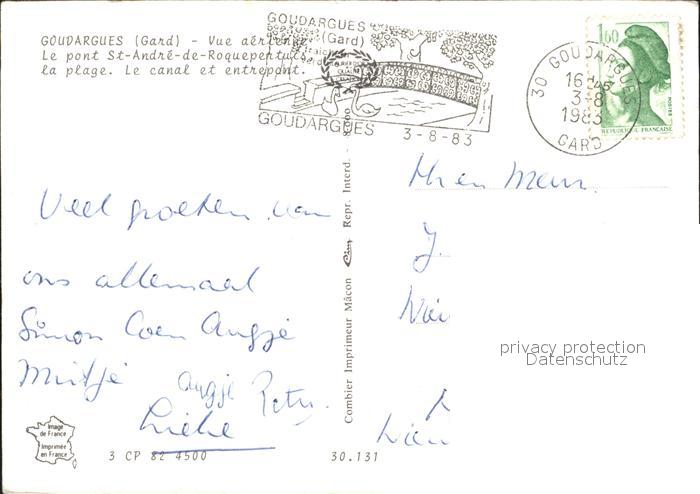 GOUDARGUES (Gard) - Vue aérienne
Le pont St-André-de-Roquepertuis
la plage. Le canal et entrepont.
GOUDARGUES
(Gard)
GOUDARGUES
3-8-83
30 GOUDARGUES
16H45
3-8
1983
GARD
1,60
POSTES
REPUBLIQUE FRANÇAISE
Veel groeten van
ons allemaal
Simon Coen Angje
Mintje Angje Petra.
Lieke
Combier Imprimeur Mâcon Cim Repr. Interd. -
Mr en Mevr.
J.
privacy protection
Datenschutz
Image
de France
Imprimée
en France
3 CP 82 4500
30.131